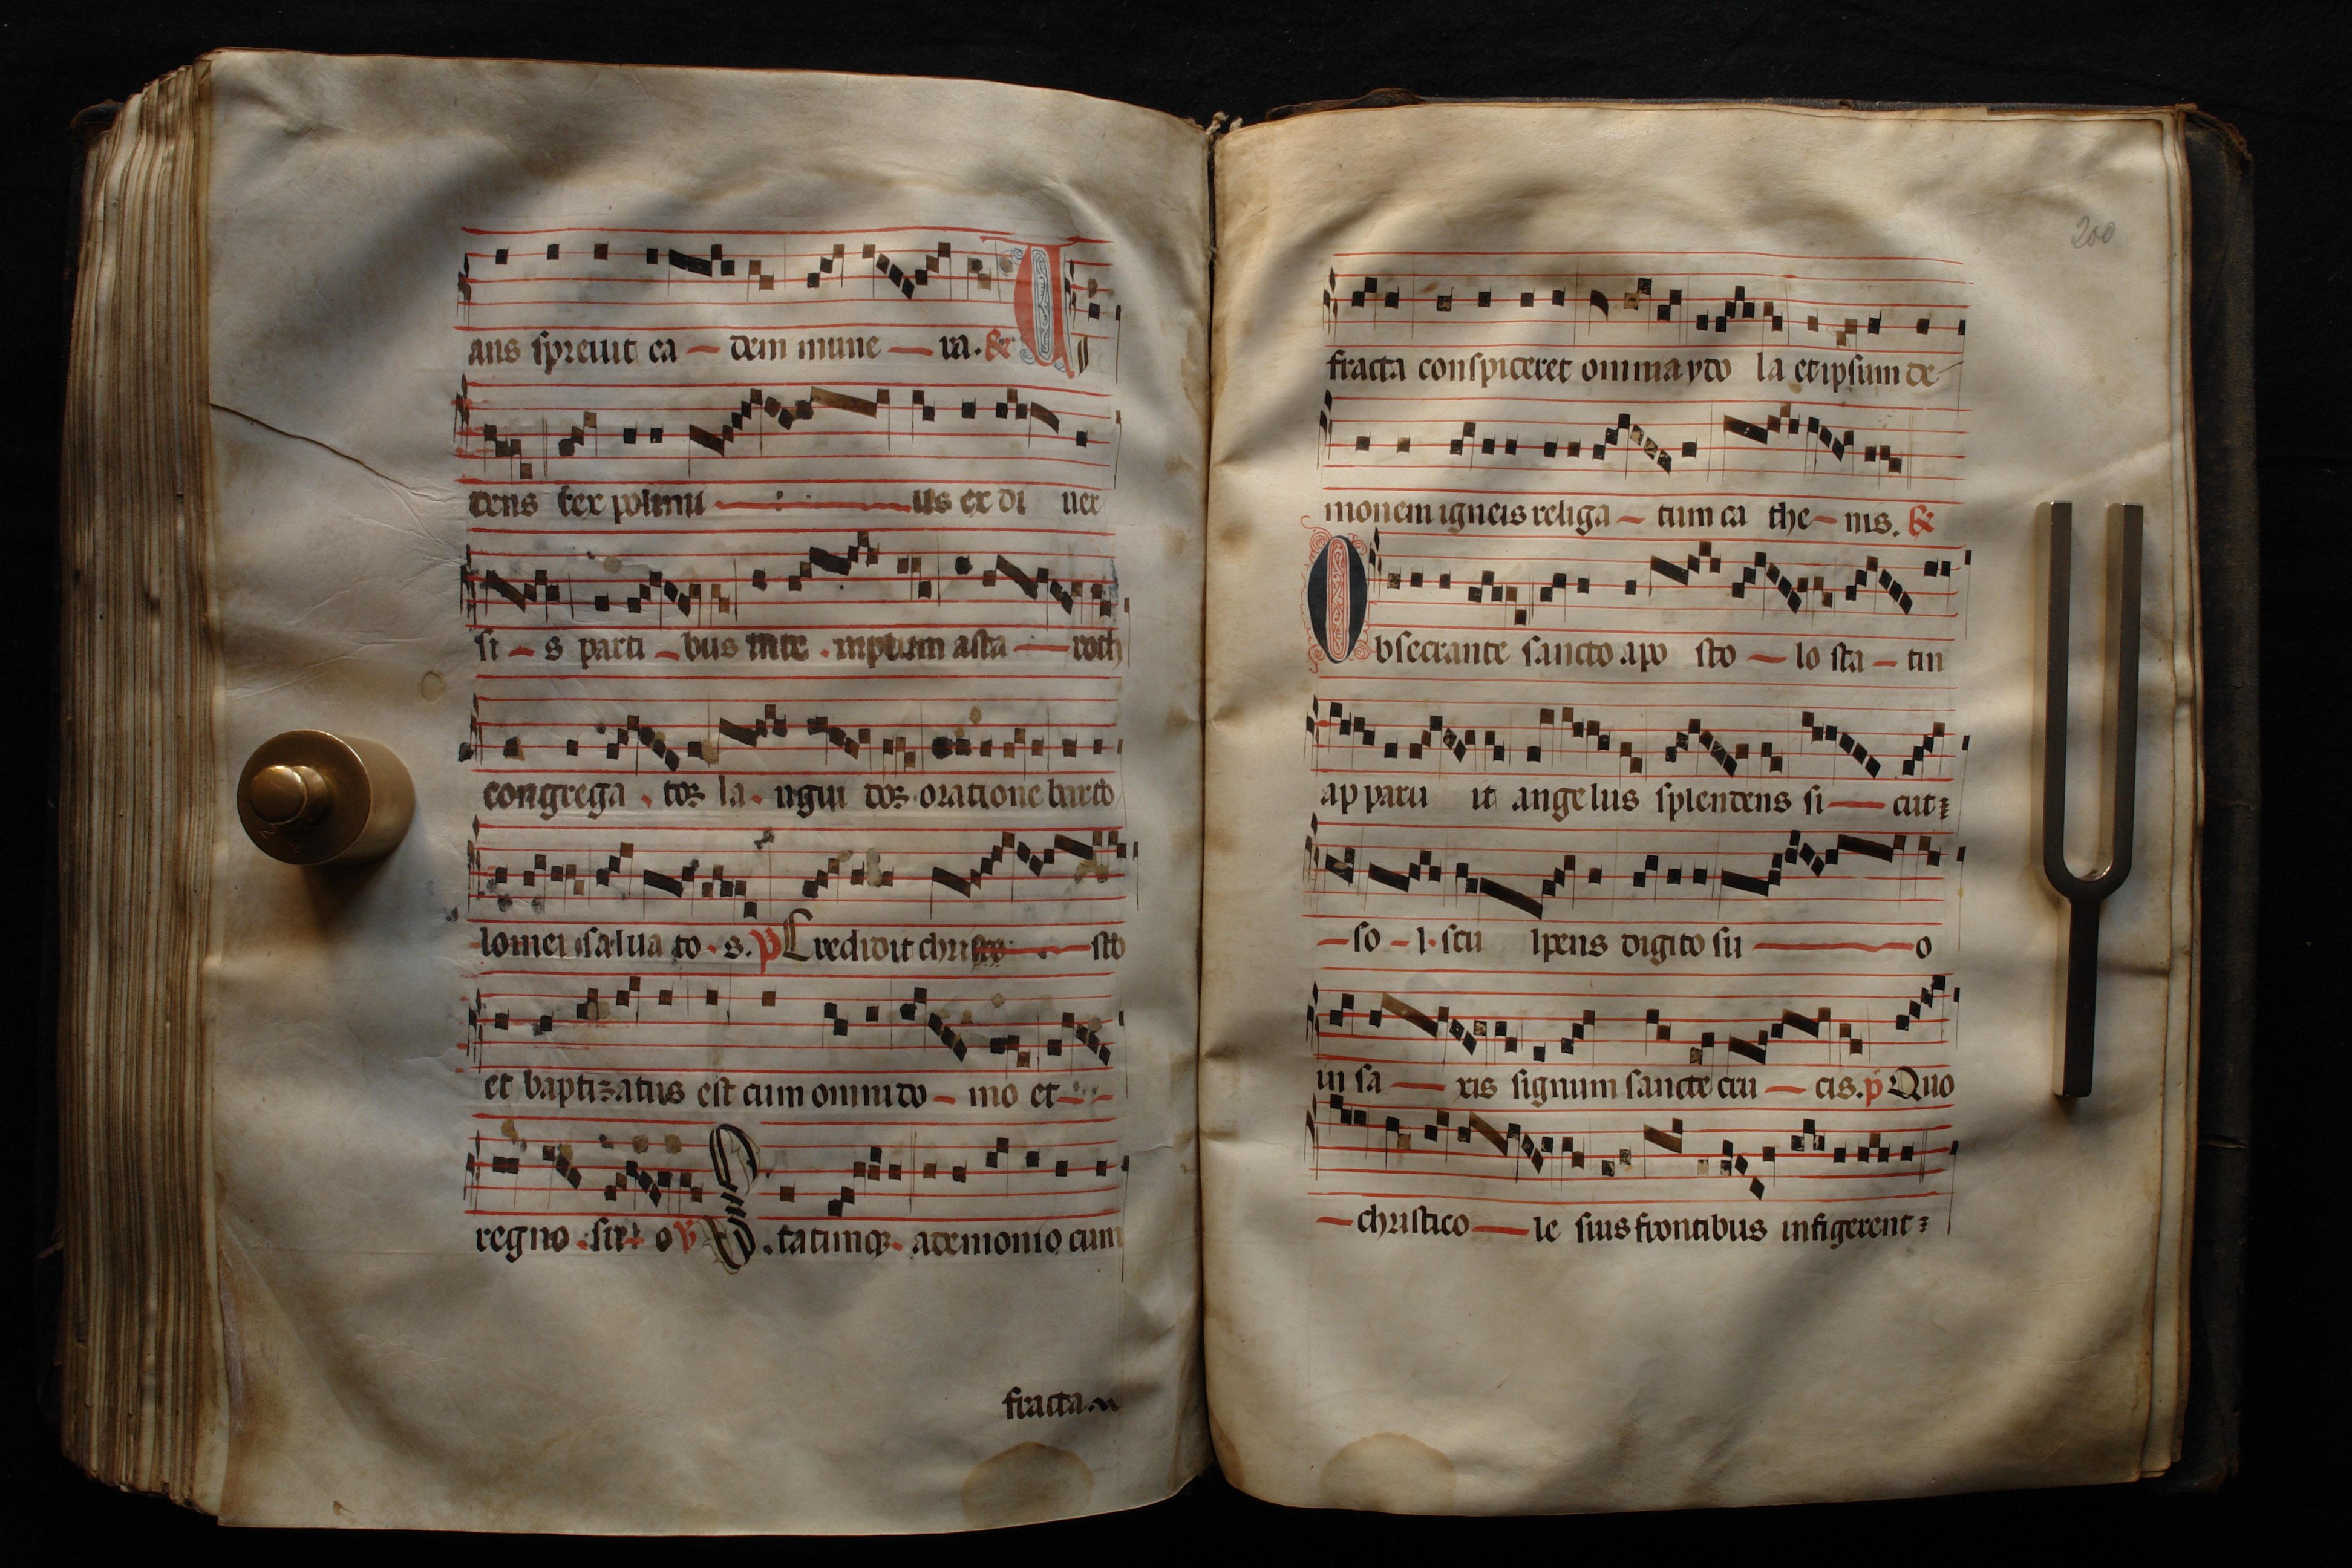 ans spreuit ea – dem mune – ra. &
U
dens rex polimi – us ex di uer
si – s parti – bus inte . mptum asta – roth
congrega . tos la . ngui dos oratione barto
lomei salua to . s. p Credidit christo – sto
et baptizatus est cum omni do – mo et –
regno . su – o v Statimq . a demonio cum
fracta
200
fracta conspiceret omnia ydo la et ipsum de
monem igneis religa – tum ca the – nis. &
Obsecrante sancto apo sto – lo sta – tin
ap paru it angelus splendens si – cut
– so – l . scu lpens digito su – o
in sa – xis signum sancte cru – cis. p Quo
– christico – le suis frontibus infigerent